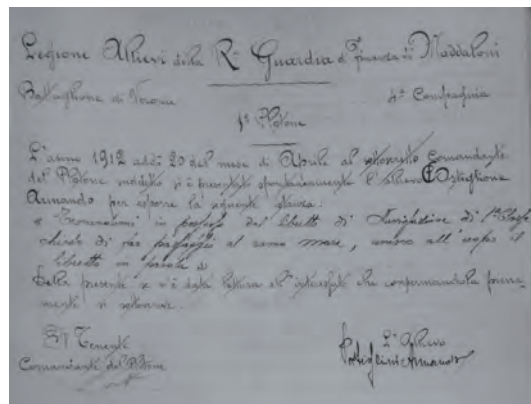 Legione Allievi della Rª Guardia di Finanza in Maddaloni
Battaglione di Verona 4ª Compagnia
1º Plotone
L'anno 1912 addì 20 del mese di Aprile al sottoscritto Comandante
del Plotone suddetto si è presentato spontaneamente l'allievo Castiglione
Armando per esporre la seguente istanza:
« Trovandomi in possesso del libretto di Navigazione di 1ª Classe
chiedo di far passaggio al ramo mare, unisco all'uopo il
libretto in parola »
Della presente si è data lettura all'interessato che confermandola
si sottoscrive.
Il Tenente L'Allievo
Comandante del Plotone Castiglione Armando